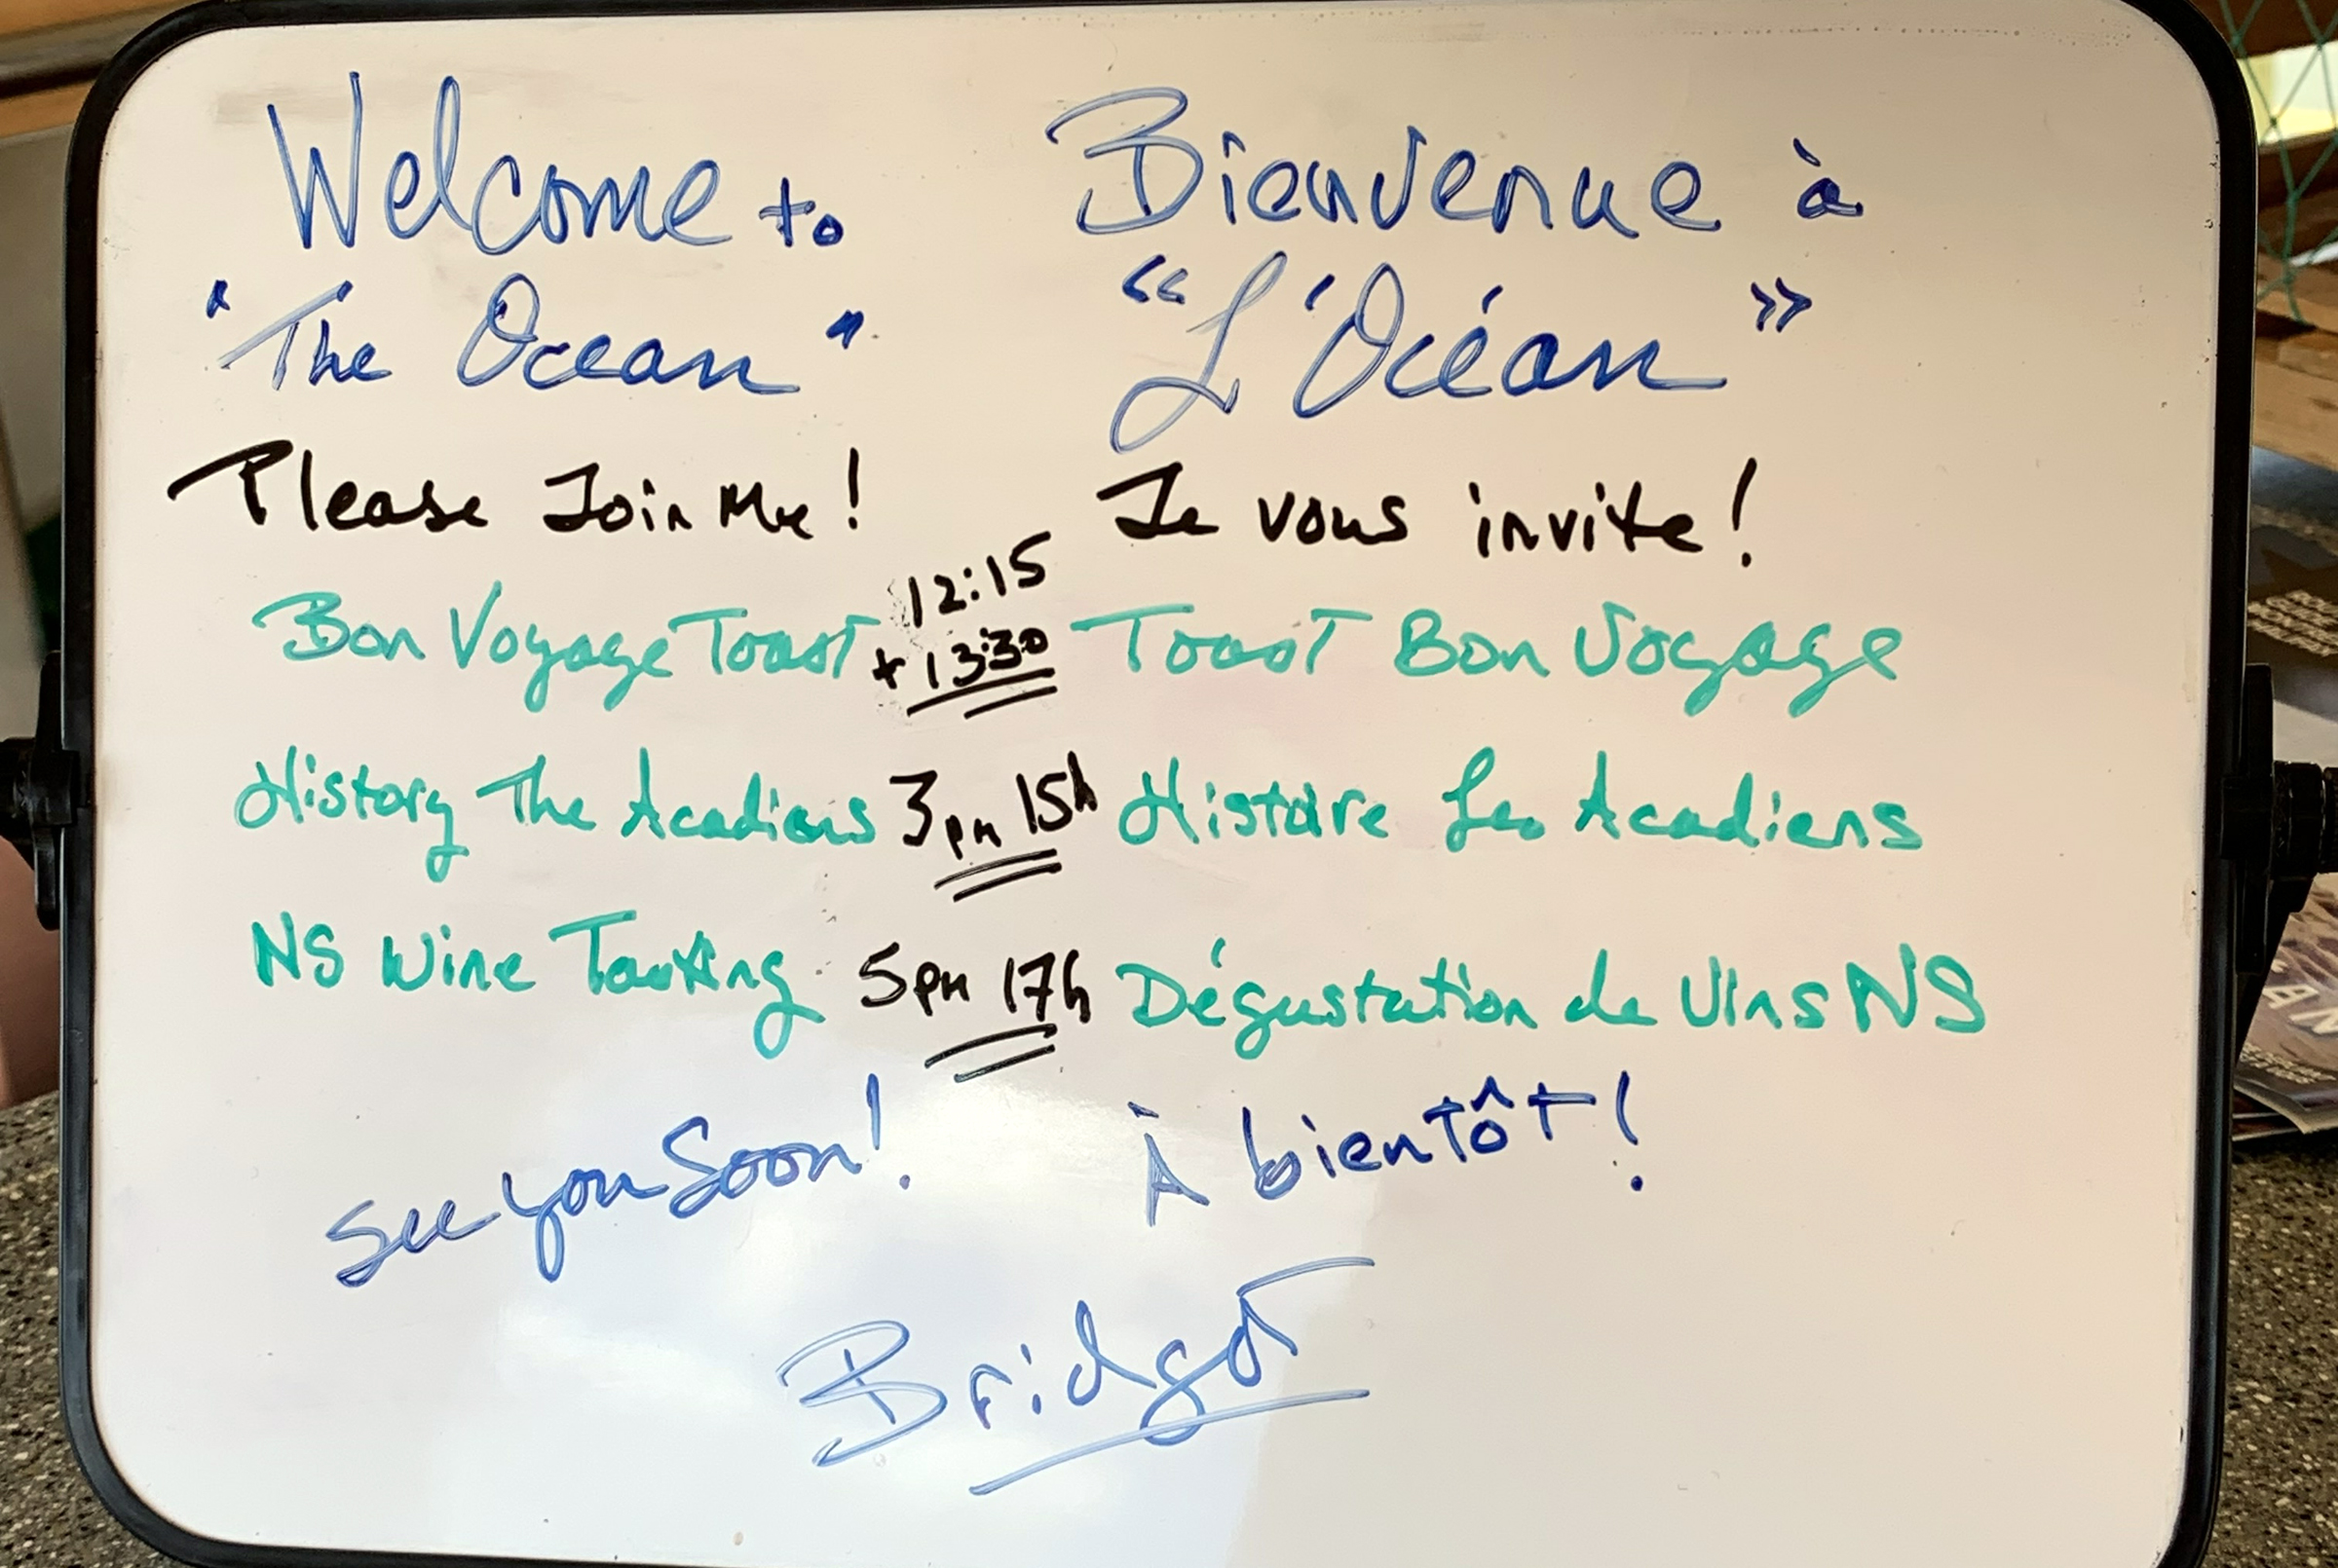 Welcome to Bienvenue à
"The Ocean" "L'Océan"
Please Join Me! Je vous invite!
12:15
Bon Voyage Toast + 13:30 Toast Bon Voyage
History The Acadians 3pm 15h Histoire Les Acadiens
NS Wine Tasting 5pm 17h Dégustation de Vins NS
See you Soon! À bientôt!
Bridget